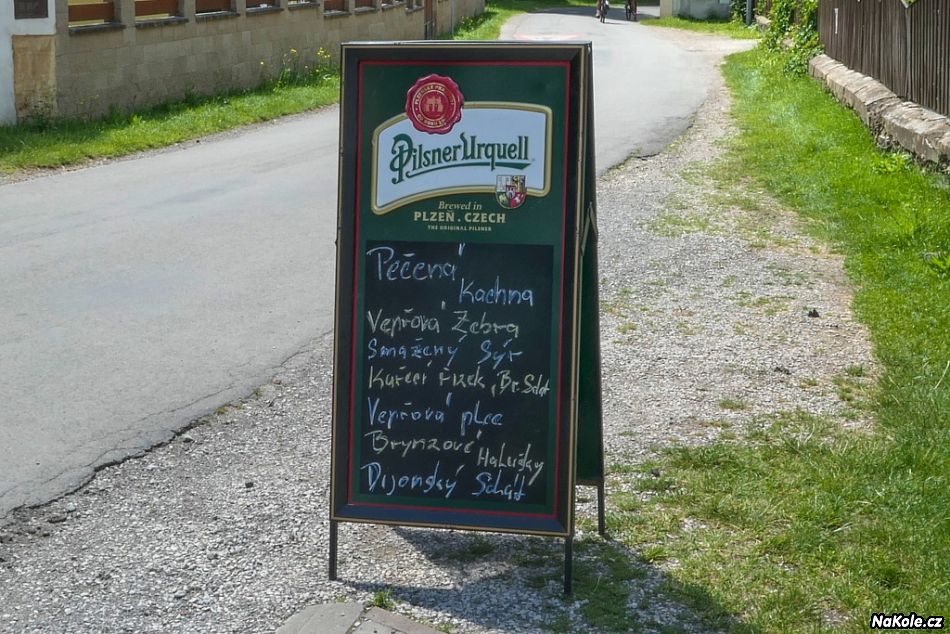 Pilsner Urquell
Brewed in
PLZEŇ . CZECH
THE ORIGINAL PILSNER
Pečená
Kachna
Vepřová Žebra
Smažený Sýr
Kuřecí řízek, Br. Salát
Vepřová plec
Brynzové
Halušky
Dijonský Salát
NaKole.cz